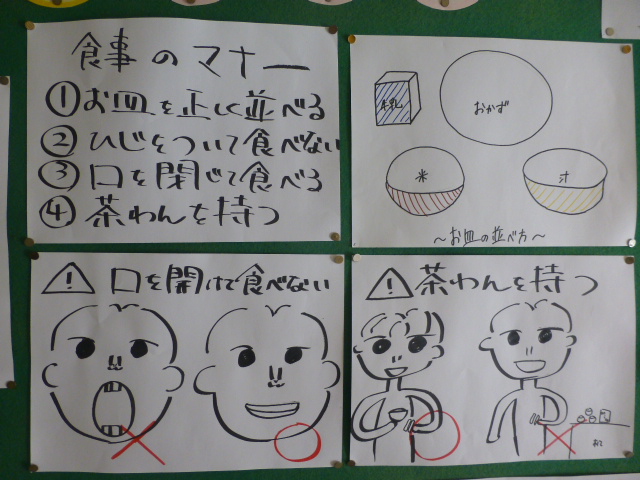 食事のマナー
①お皿を正しく並べる
②ひじをついて食べない
③口を閉じて食べる
④茶わんを持つ
牛乳
おかず
米
汁
～お皿の並べ方～
口を開けて食べない
茶わんを持つ